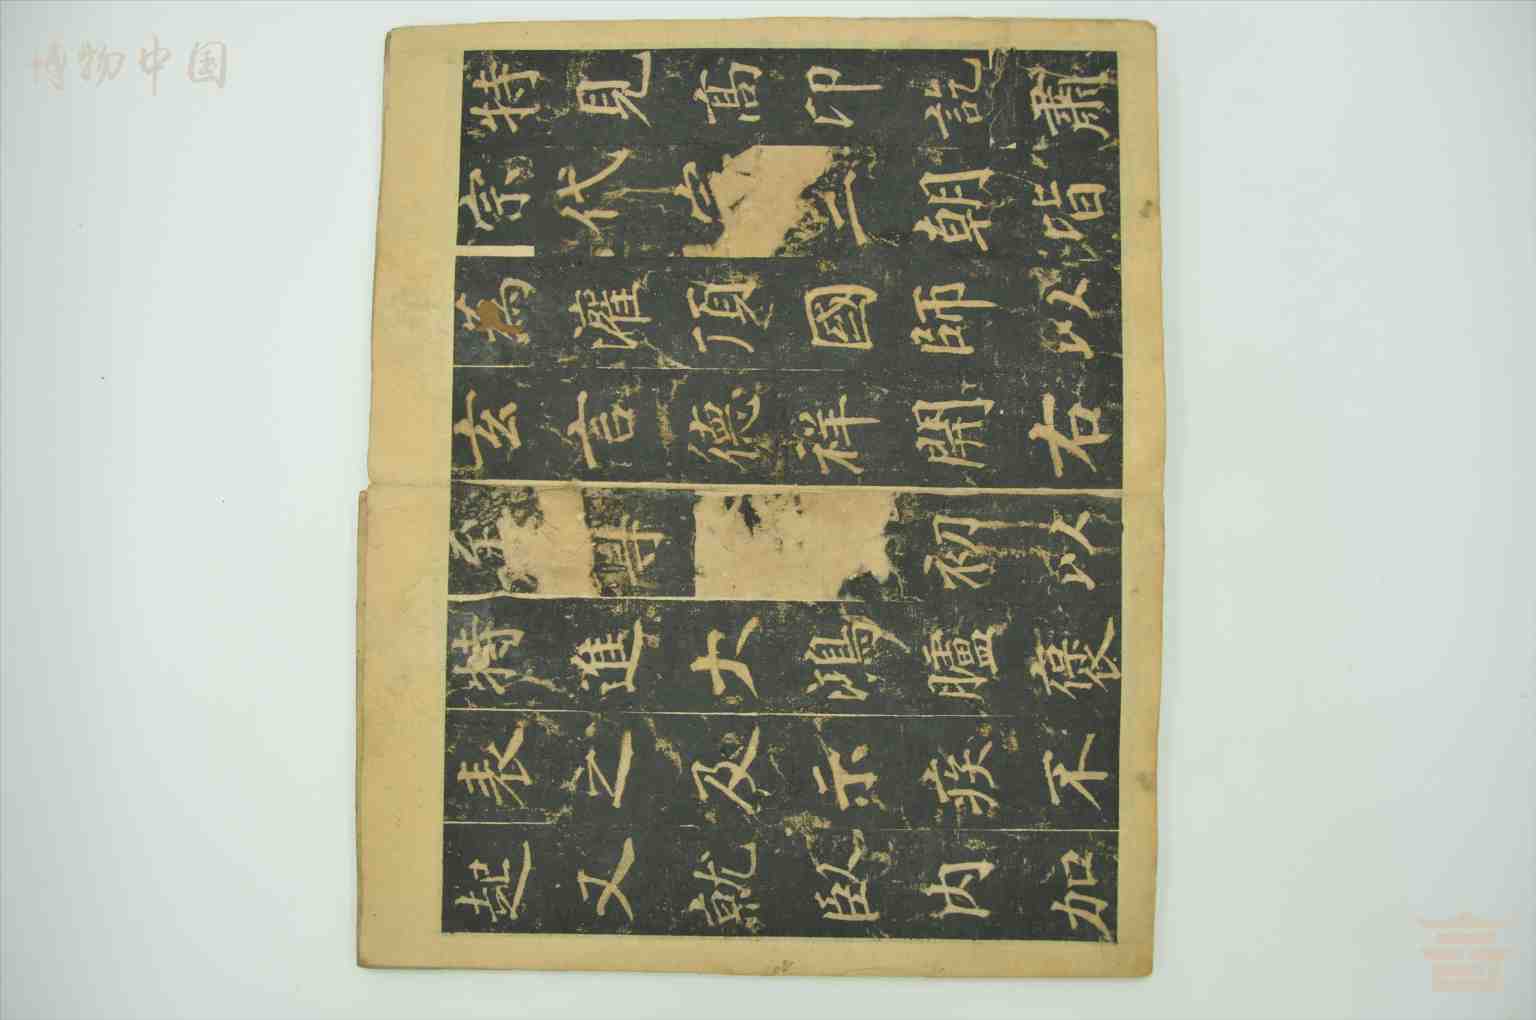 特見高卬訖肅
宗代宗三朝皆
為灌頂國師以
玄言德祥開右
至尊初以
特進大鴻臚褒
表之及示疾不
起又就臥內加
博物中国